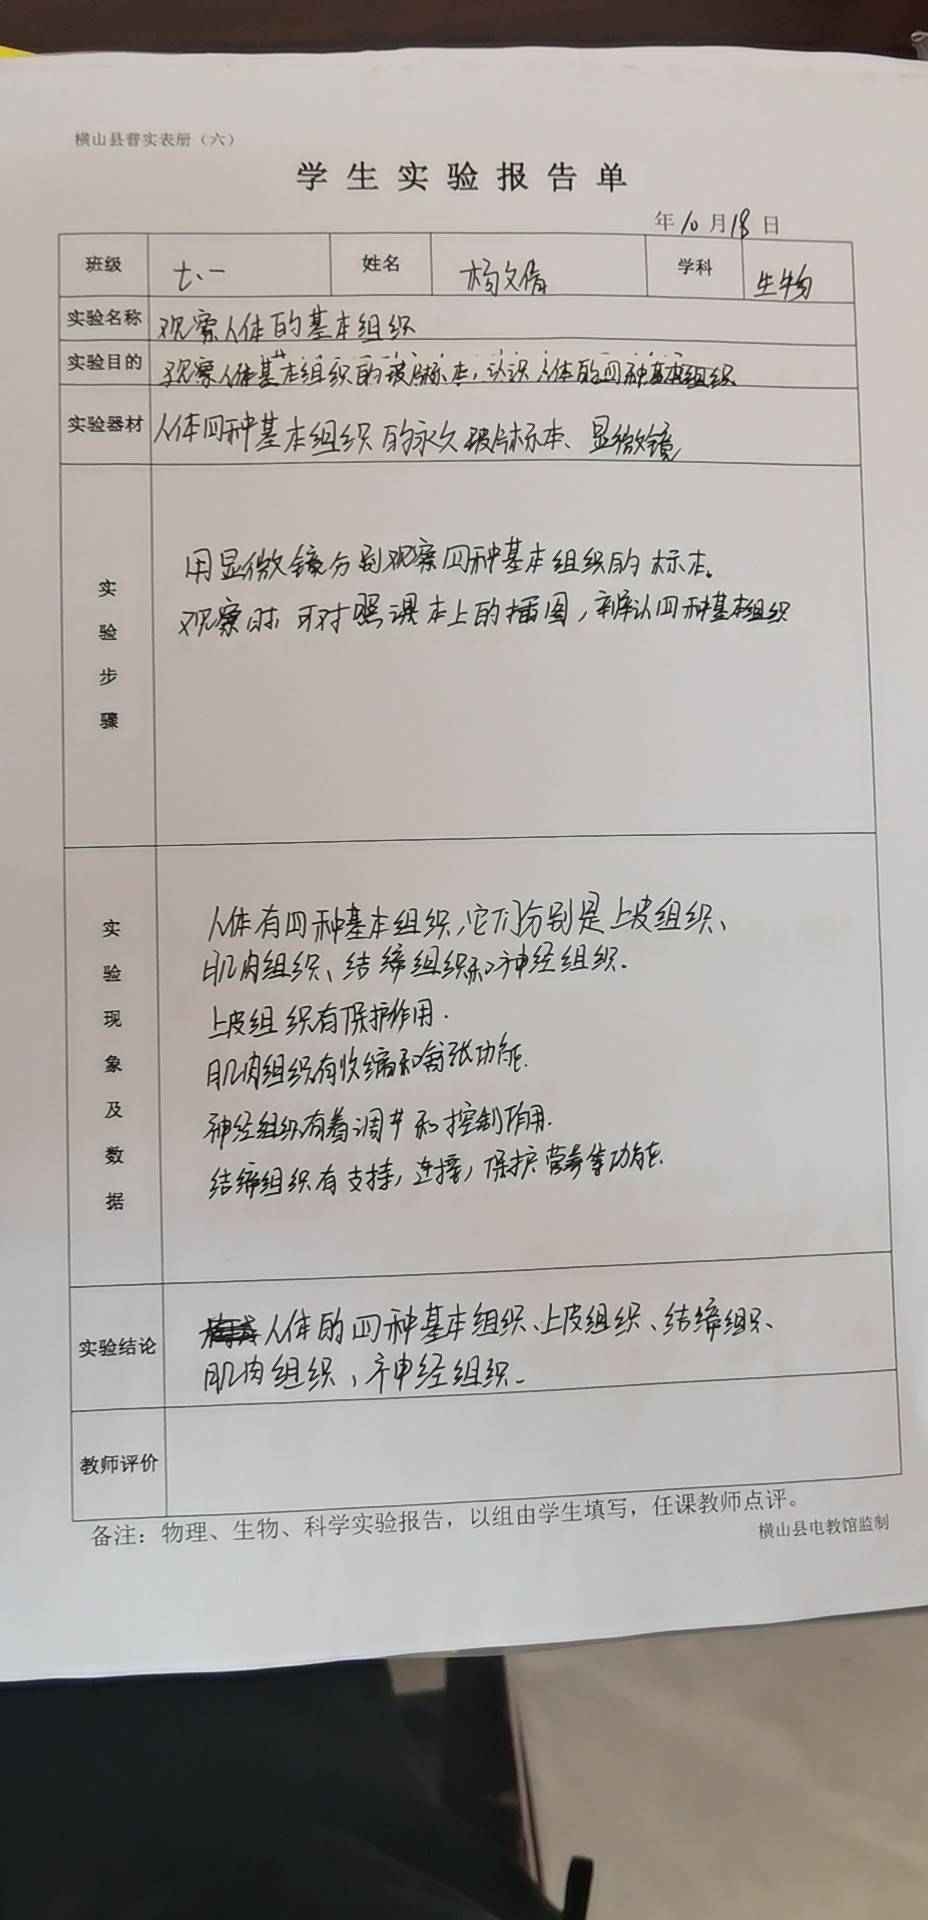 横山县普实表册（六）
学生实验报告单
年10月18日
班级 七.一 姓名 杨文倩 学科 生物
实验名称 观察人体的基本组织
实验目的 观察人体基本组织的玻片标本，认识人体的四种基本组织
实验器材 人体四种基本组织的永久玻片标本、显微镜
实验步骤
用显微镜分别观察四种基本组织的标本。
观察时可对照课本上的插图，辨认四种基本组织
实验现象及数据
人体有四种基本组织，它们分别是上皮组织、
肌肉组织、结缔组织和神经组织.
上皮组织有保护作用.
肌肉组织有收缩和舒张功能.
神经组织有着调节和控制作用.
结缔组织有支持，连接，保护营养等功能.
实验结论 人体的四种基本组织、上皮组织、结缔组织、
肌肉组织，神经组织.
教师评价
备注：物理、生物、科学实验报告，以组由学生填写，任课教师点评。
横山县电教馆监制